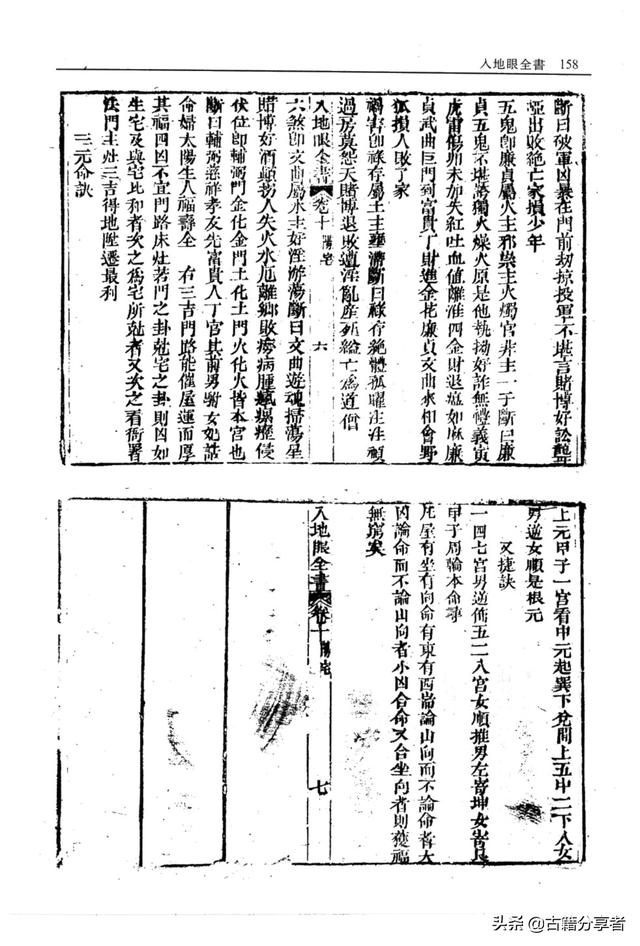 入地眼全書 158
斷曰破軍凶暴在門前劫掠投軍不堪言賭博好訟聾
啞出敗絕亡家損少年
五鬼卽廉貞屬火主邪祟主火燭官非主一子斷曰廉
貞五鬼不堪誇獨火燥火原是他執拗好訐無禮義寅
虎雷傷卯未加失紅吐血值離淮四金財退瘟如麻廉
貞武曲巨門到富貴丁財進金花廉貞文曲來相會野
狐損人敗了家
禍害卽祿存屬土主斷曰祿存絕體孤曜注注頑
過房莫怨天賭博退敗遭淫亂產死縊亡爲道僧
入地眼全書 卷十 陽宅 六
六煞卽文曲屬水主好淫游蕩斷曰文曲遊魂掃蕩星
賭博好酒顛拐人失火水厄離鄉敗癆病腫瘋癱侵
伏位卽輔弼門金化金門土化土門火化火皆本宮也
斷曰輔弼慈祥孝友先富貴人丁官其前男駙女妃誥
命婦太陽生人福壽全 右三吉門路能催屋運而厚
其福四凶不宜門路床灶若門之卦尅宅之卦則凶如
生宅及與宅比和者次之爲宅所尅者又次之看衙署
法門主灶三吉得地陞遷最利
三元命訣
上元甲子一宮看中元起巽下兌間上五中二下八女
男逆女順是根元
又捷訣
一四七宮男逆佈五二八宮女順推男左寄坤女寄艮
甲子周輪本命尋
凡屋有坐有向命有東有西論山向而不論命者大
凶論命而不論山向者小凶合命又合坐向者則獲福
無窮矣
入地眼全書 卷十 陽宅 七
头条 @古籍分享者